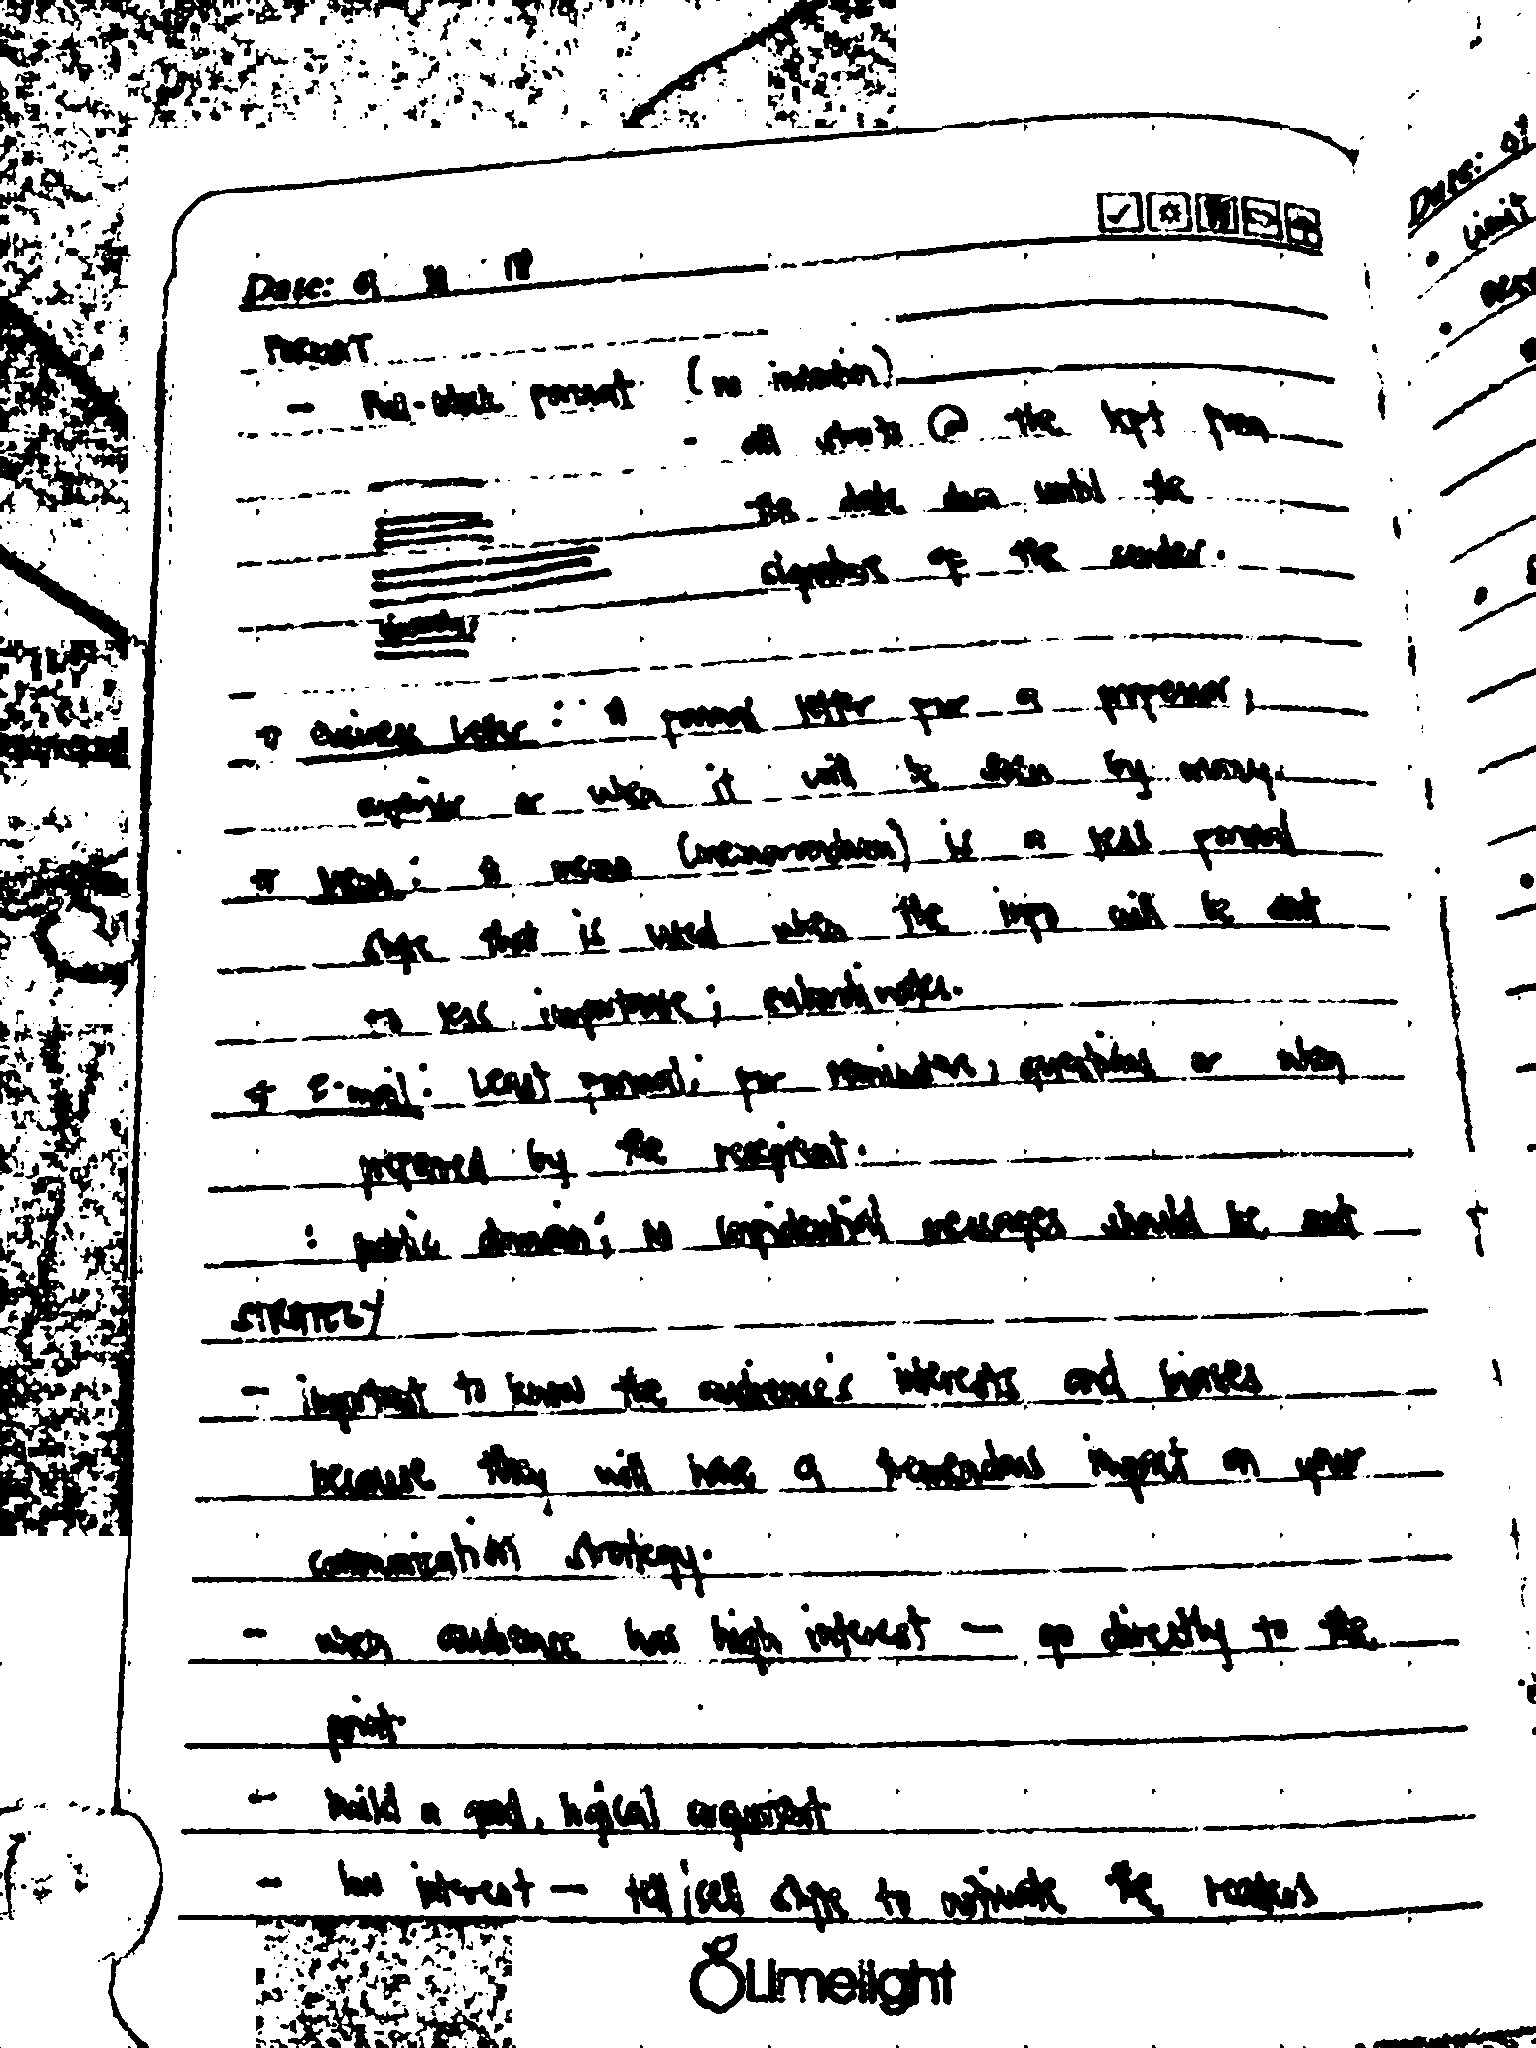 Date: 9
FORMAT
- Full-block format (no indention)
- all starts @ the left from
the date down until the
signature of the sender.
Business letter: A formal letter for a professor,
superior or when it will be seen by many.
Memo: A memo (memorandum) is a less formal
style that is used when the info will be sent
to less important; subordinates.
E-mail: Least formal; for reminders, questions or when
preferred by the recipient.
: public domain; no confidential messages should be sent
STRATEGY
- important to know the audience's interests and biases
because they will have a tremendous impact on your
communication strategy.
- when audience has high interest — go directly to the
point.
- build a good, logical argument
- low interest — tell/sell style to motivate the readers
Limelight
Date: